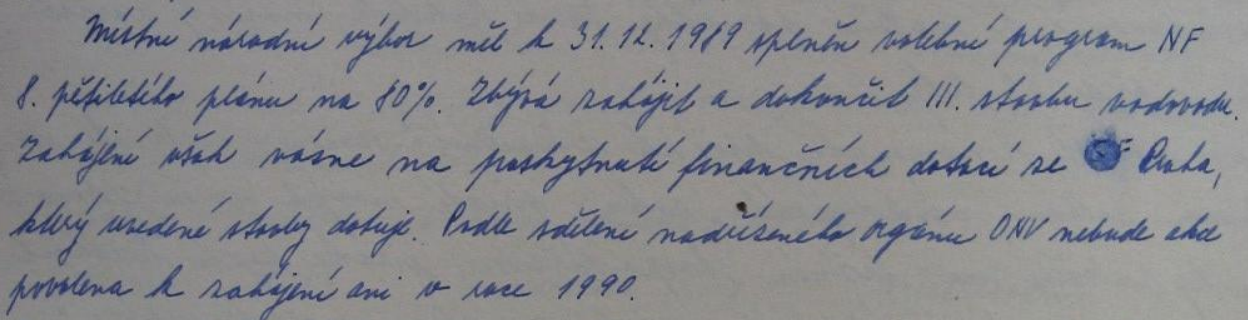 Místní národní výbor měl k 31.12.1989 splněn volební program NF
8. pětiletého plánu na 80%. Zbývá zahájit a dokončit III. stavbu vodovodu.
Zahájení však vázne na poskytnutí finančních dotací se Praha,
který uvedené stavby dotuje. Podle sdělení nadřízeného orgánu ONV nebude akce
povolena k zahájení ani v roce 1990.